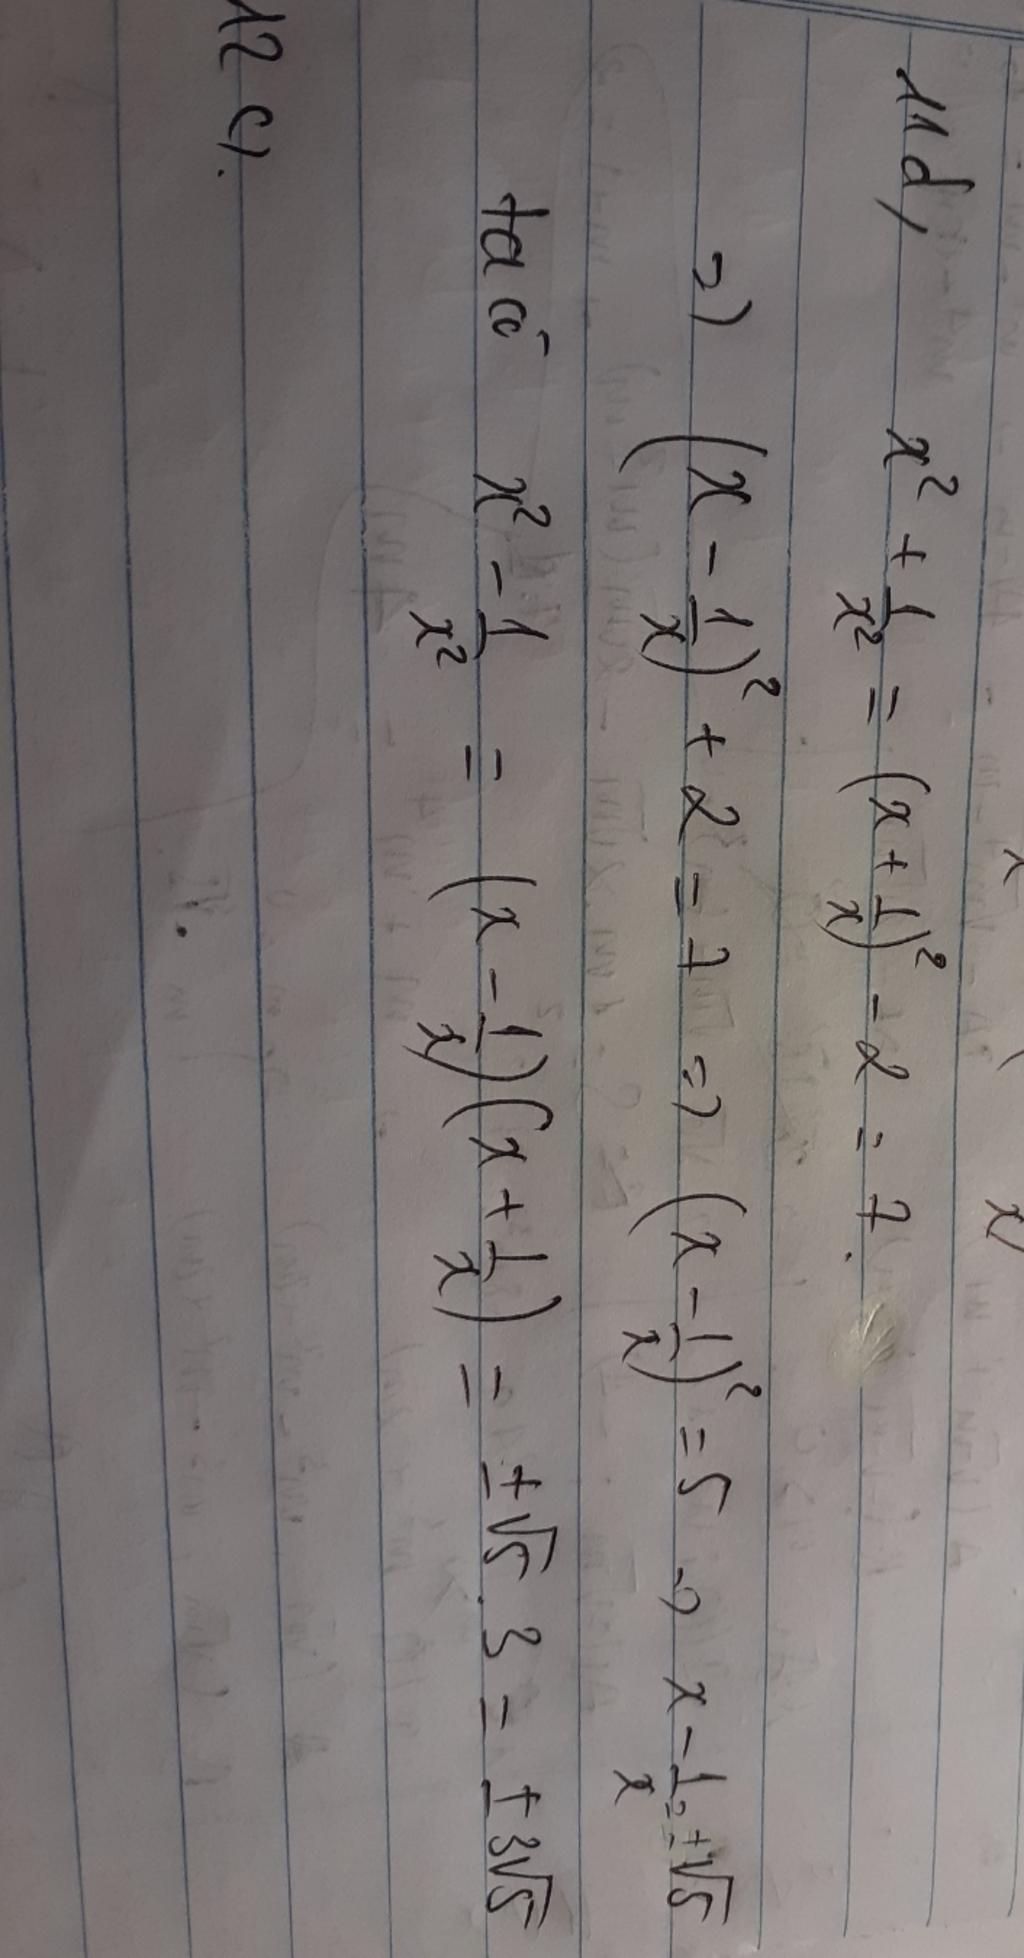 11d, x² + 1/x² = (x + 1/x)² - 2 = 7.
=) (x - 1/x)² + 2 = 7 => (x - 1/x)² = 5 => x - 1/x = ±√5
ta có x² - 1/x² = (x - 1/x)(x + 1/x) = ±√5 . 3 = ±3√5
12 c).